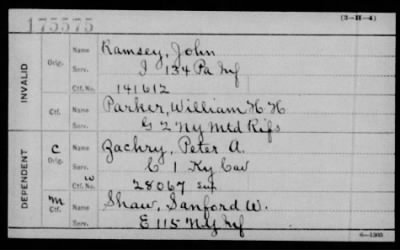 175575
(3-H-4)
INVALID
Orig. Name Ramsey, John
Serv. I 134 Pa Inf
Ctf. No. 141612
Ctf. Name Parker, William H H
Serv. G 2 Ny Mtd Rifs
DEPENDENT
C Orig. Name Zachry, Peter A.
Serv. C 1 Ky Cav
W Ctf. No. 28067
m Ctf. Name Shaw, Sanford W.
Serv. E 115 Ny Inf